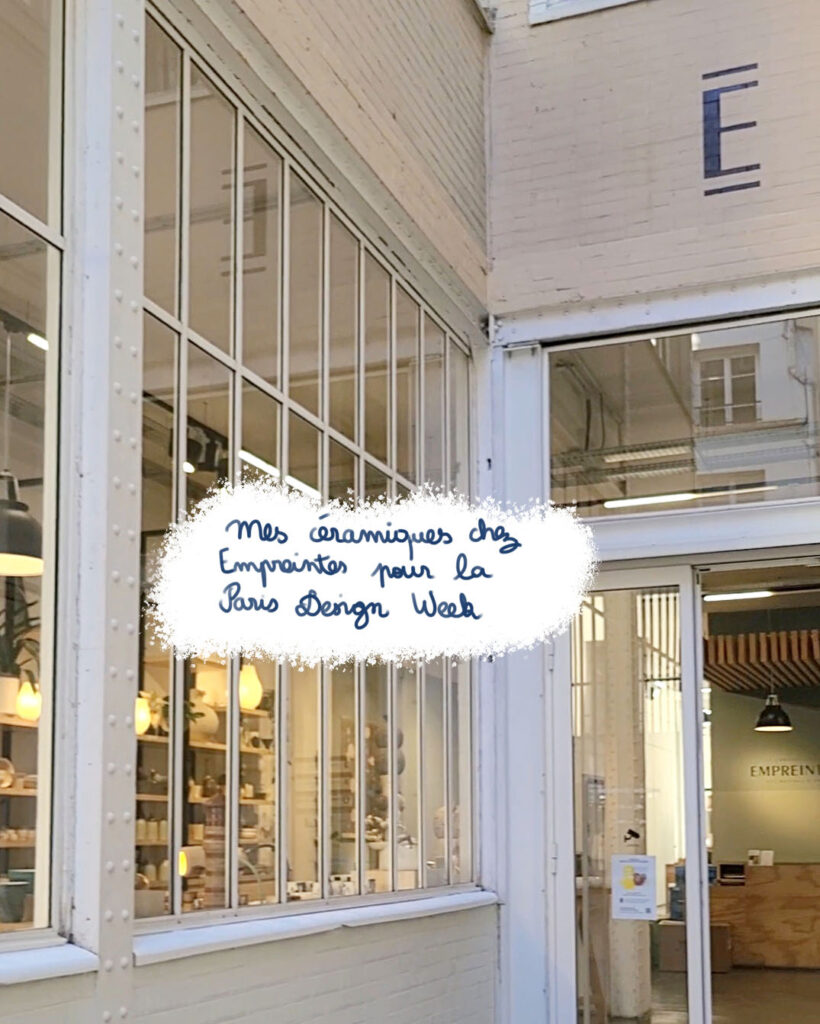 E
Mes céramiques chez
Empreintes pour la
Paris Design Week
EMPREINT